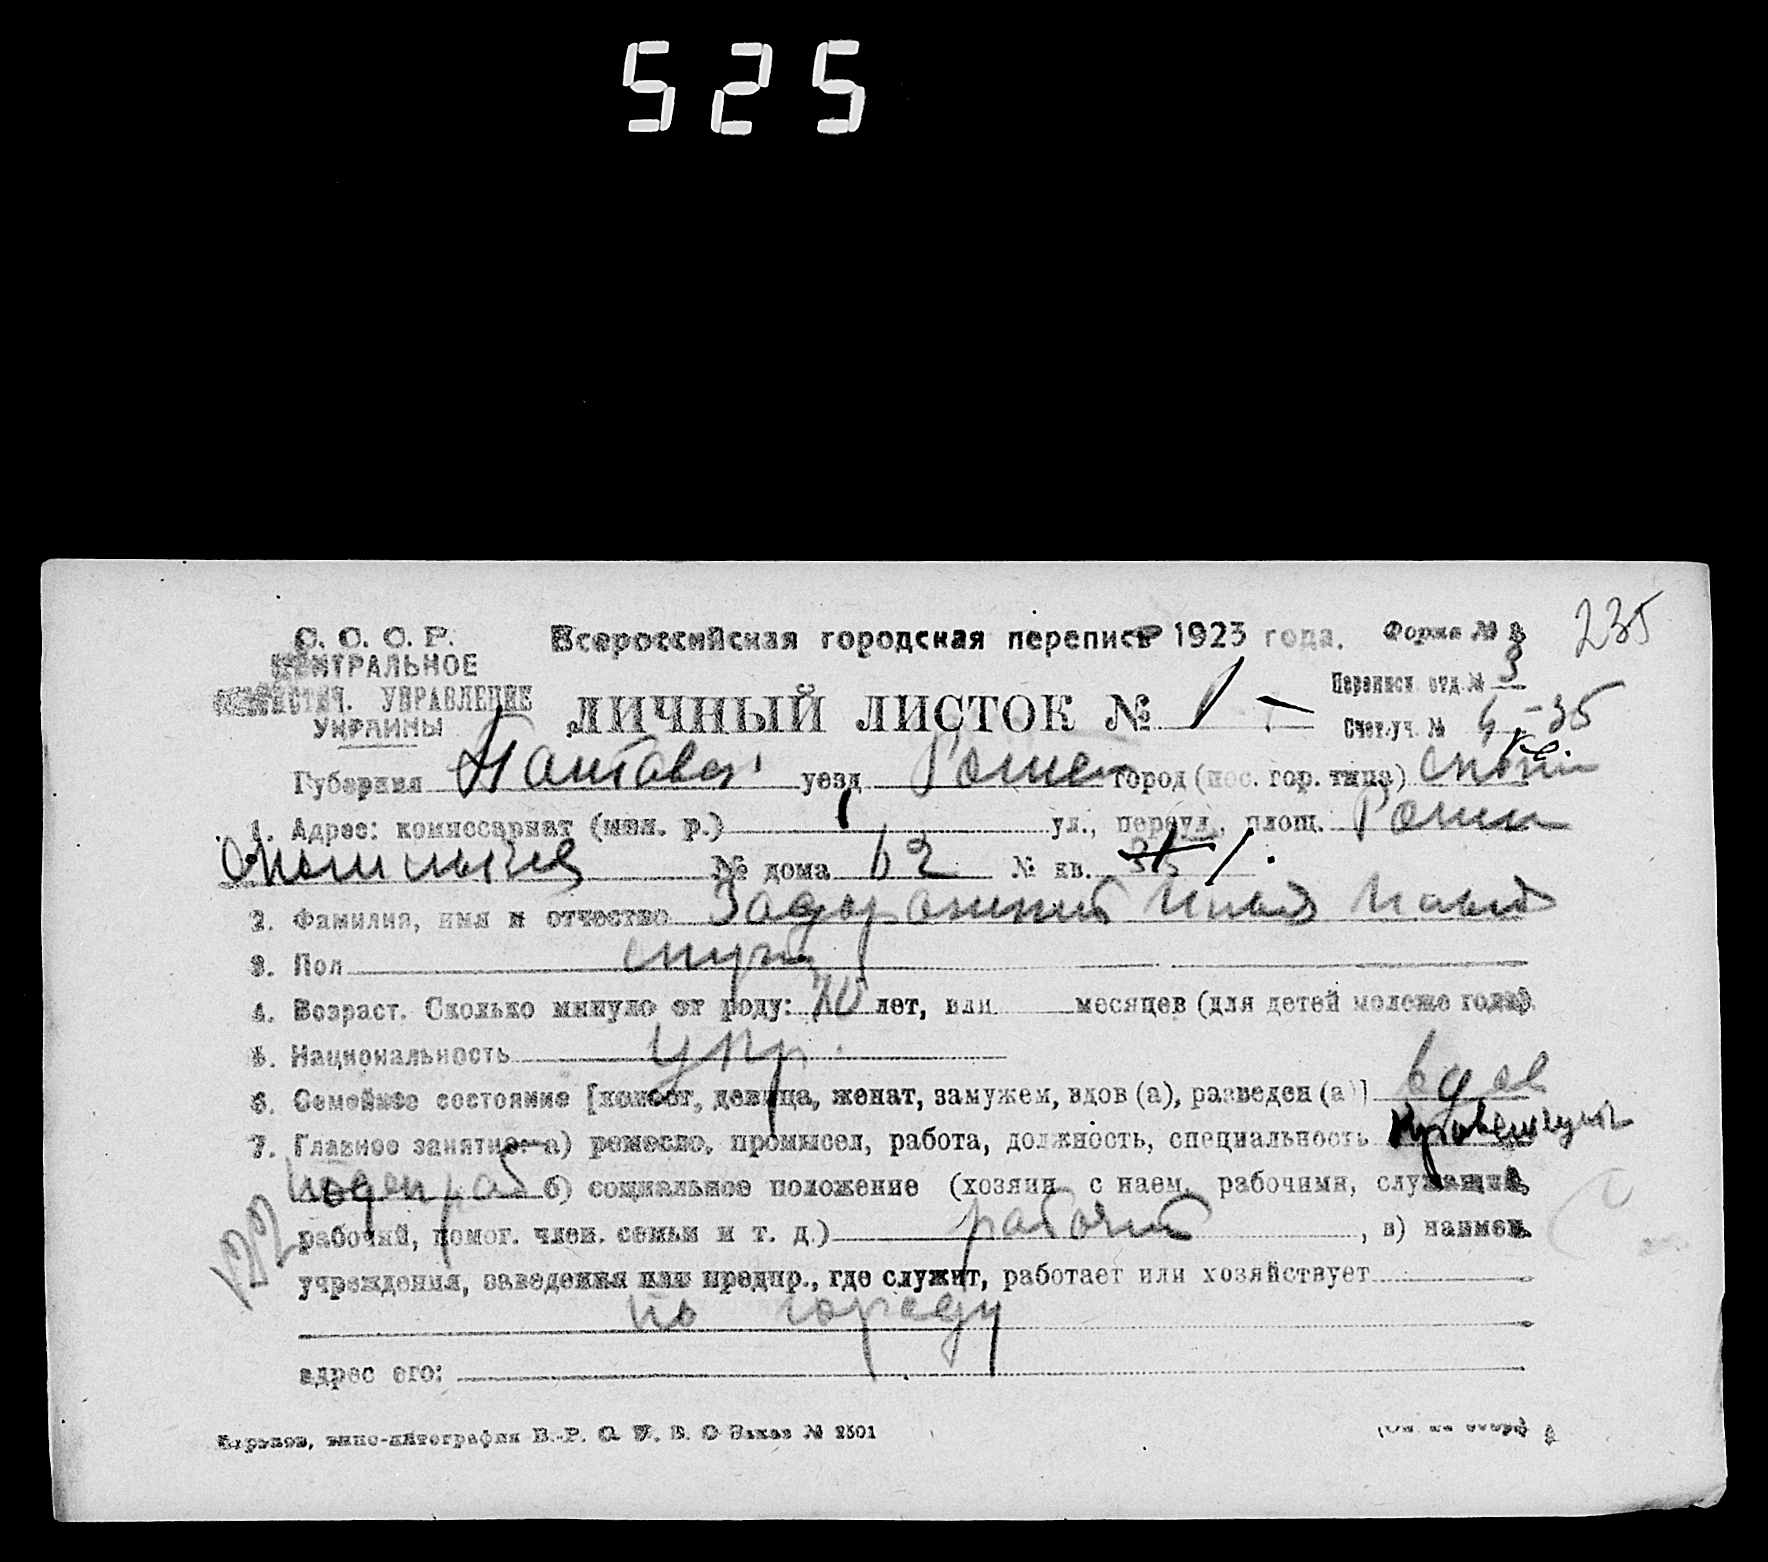 525
С. С. С. Р.
ЦЕНТРАЛЬНОЕ
СТАТИСТИЧ. УПРАВЛЕНИЕ
УКРАИНЫ
Всероссийская городская перепись 1923 года.
Форма № 3
235
ЛИЧНЫЙ ЛИСТОК № 1
Переписн. отд. № 3
Счет. уч. № 6-35
Губерния уезд город (пос. гор. типа)
1. Адрес: комиссариат (мил. р.) 1 ул., переул., площ.
№ дома 62 № кв. 35 1.
2. Фамилия, имя и отчество Задорожний
3. Пол муж
4. Возраст. Сколько минуло от роду: 70 лет, или месяцев (для детей моложе года).
5. Национальность укр.
6. Семейное состояние [холост, девица, женат, замужем, вдов (а), разведен (а)] вдов
7. Главное занятие: а) ремесло, промысел, работа, должность, специальность
б) социальное положение (хозяин с наем. рабочими, служащий,
рабочий, помог. член. семьи и т. д.) рабочий, в) наимен.
учреждения, заведения или предпр., где служит, работает или хозяйствует
по городу
адрес его:
Харьков, типо-литография В.-Р. С. У. В. О Заказ № 2501